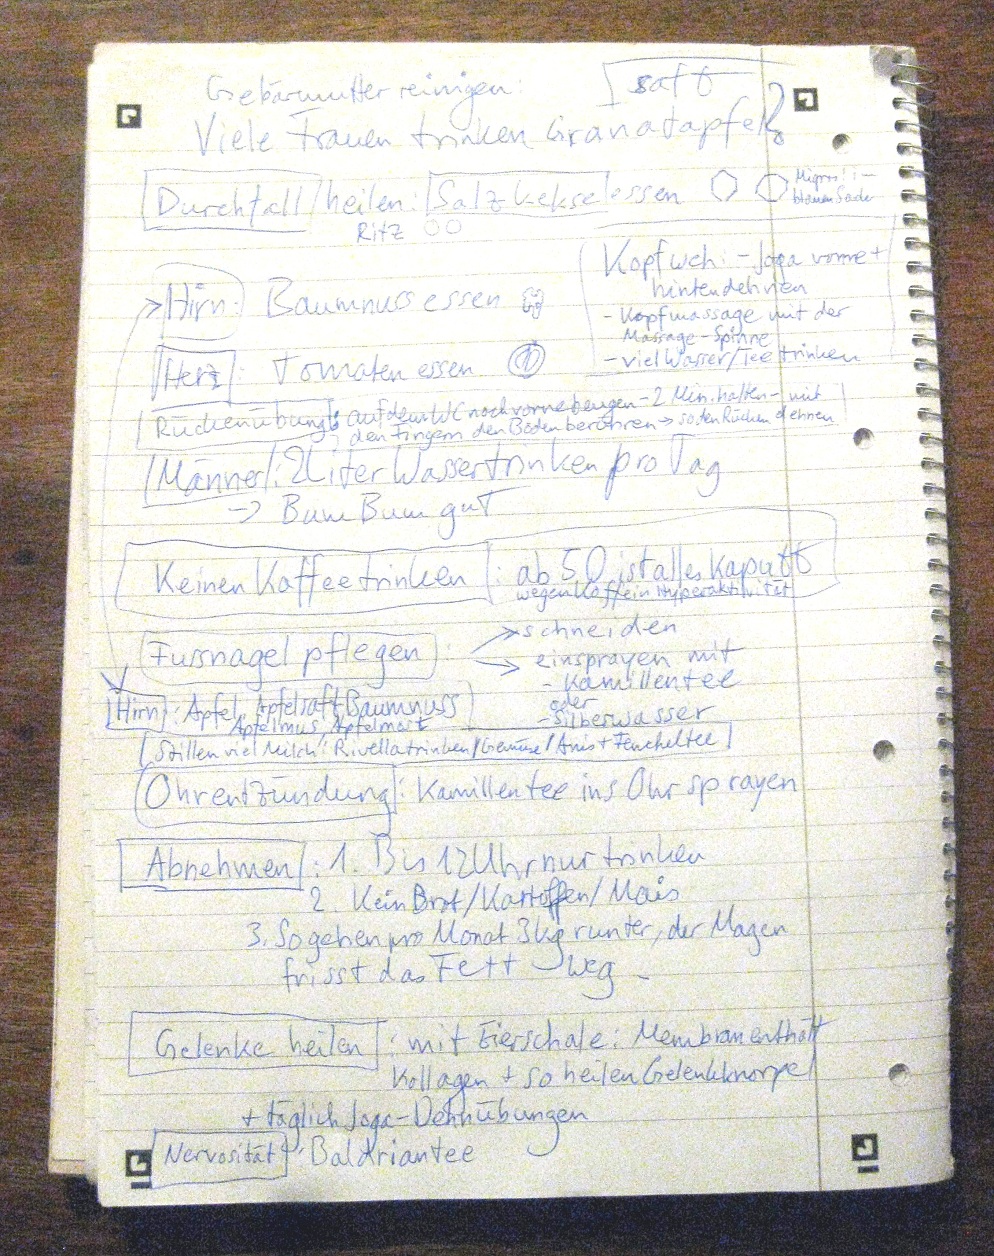 Gebärmutter reinigen:
saft
Viele Frauen trinken Granatapfel
Durchfall heilen: Salzkekse essen
Migros:
blauen
Ritz
Kopfweh: - Joga vorne +
hinten dehnen
- Kopfmassage mit der
Massage-Spinne
- viel Wasser/Tee trinken
Hirn: Baumnuss essen
Herz: Tomaten essen
Rückenübung: auf dem WC nach vorne beugen - 2 Min. halten - mit
den Fingern den Boden berühren → so den Rücken dehnen
Männer: 2 Liter Wasser trinken pro Tag
→ Bum Bum gut
Keinen Kaffee trinken: ab 50 ist alles kaputt
wegen Koffein Hyperaktivität
Fussnagel pflegen: → schneiden
→ einsprayen mit
- Kamillentee
oder
- Silberwasser
Hirn: Apfel, Apfelsaft Baumnuss
Apfelmus, Apfelmost
Stillen viel Milch: Rivella trinken/Gemüse/Anis + Fencheltee
Ohrentzündung: Kamillentee ins Ohr sprayen
Abnehmen: 1. Bis 12 Uhr nur trinken
2. Kein Brot/Kartoffen/Mais
3. So gehen pro Monat 3kg runter, der Magen
frisst das Fett weg -
Gelenke heilen: mit Eierschale: Membran enthält
Kollagen + so heilen Gelenkknorpel
+ täglich Joga-Dehnübungen
Nervosität: Baldriantee